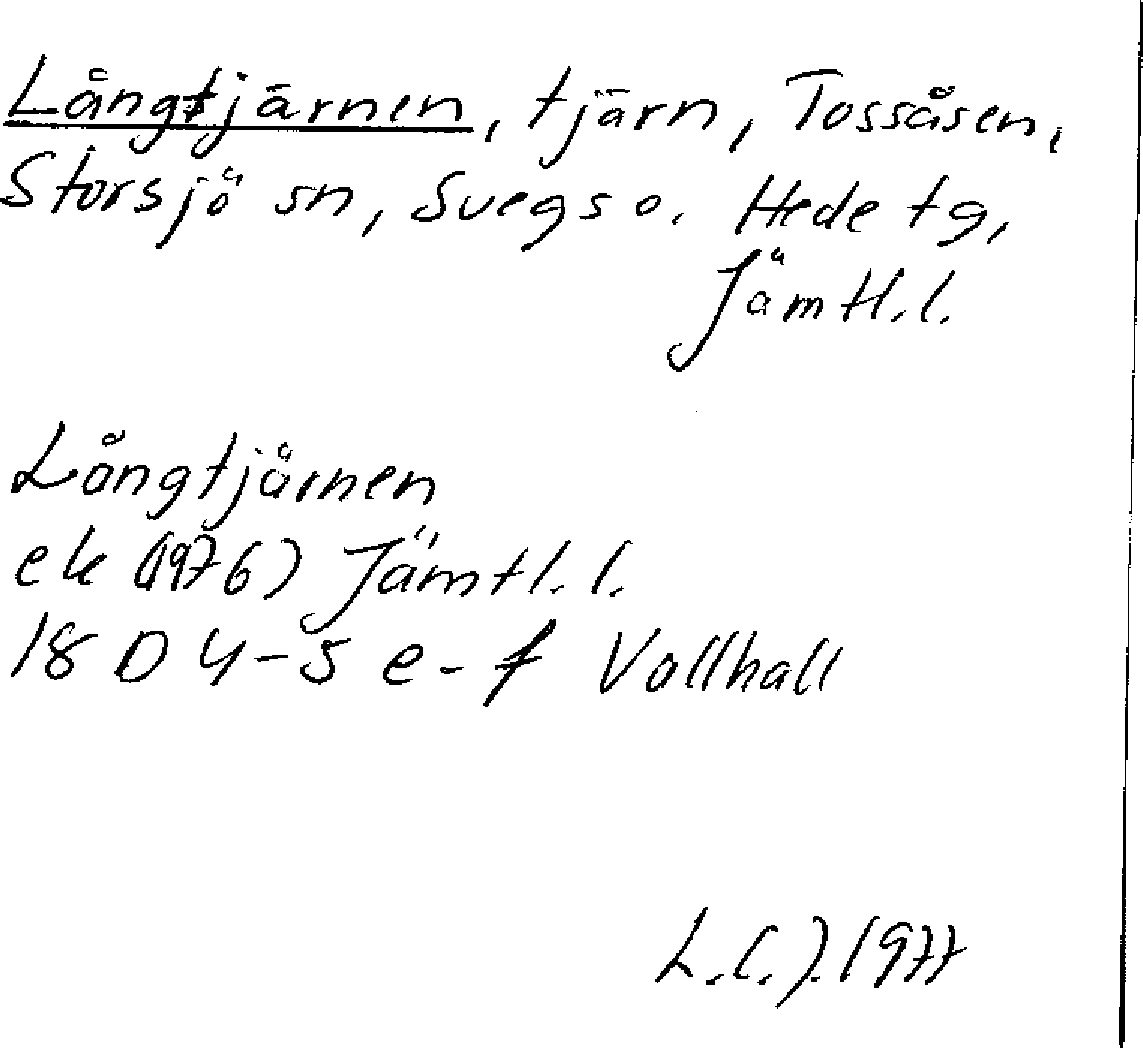 Långtjärnen, tjärn, Tossåsen,
Storsjö sn, Svegs o. Hede tg,
Jämtl. l.
Långtjärnen
ek (1976) Jämtl. l.
18 D 4-5 e-f Vallhall
L.C.J. 1977